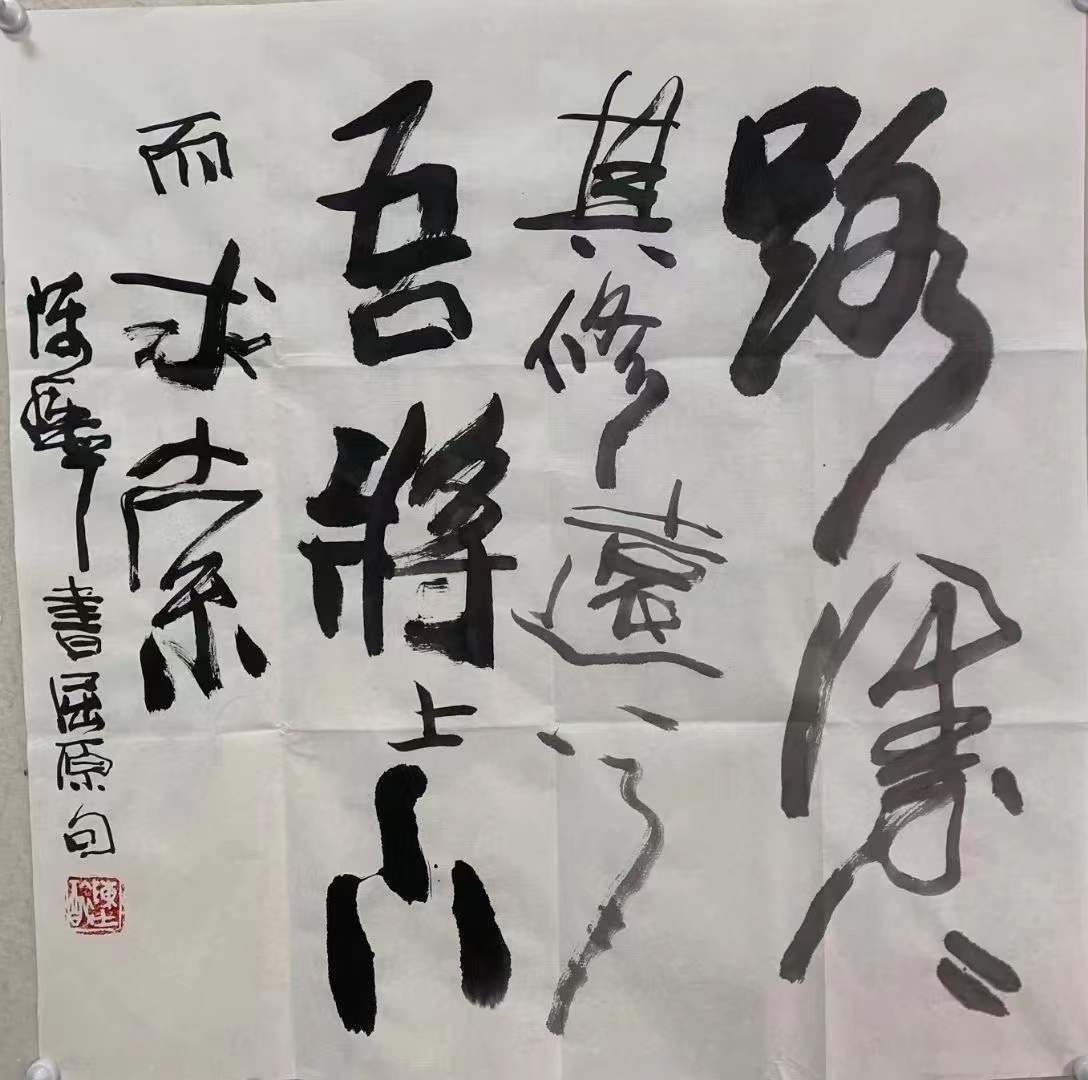 路漫〻
其修遠兮
吾將上下
而求索
陈 書屈原句